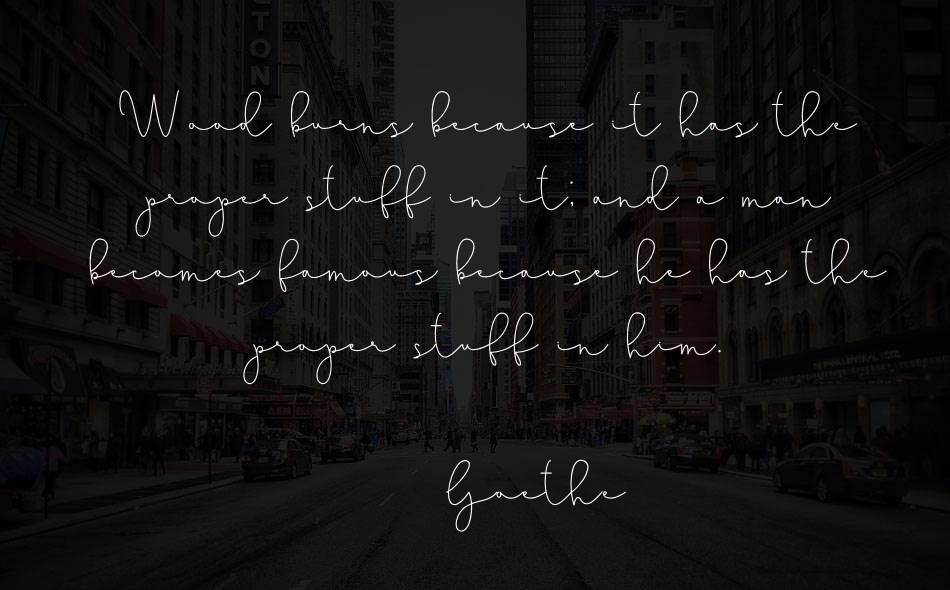 TON
Wood burns because it has the
proper stuff in it; and a man
becomes famous because he has the
proper stuff in him.
Goethe